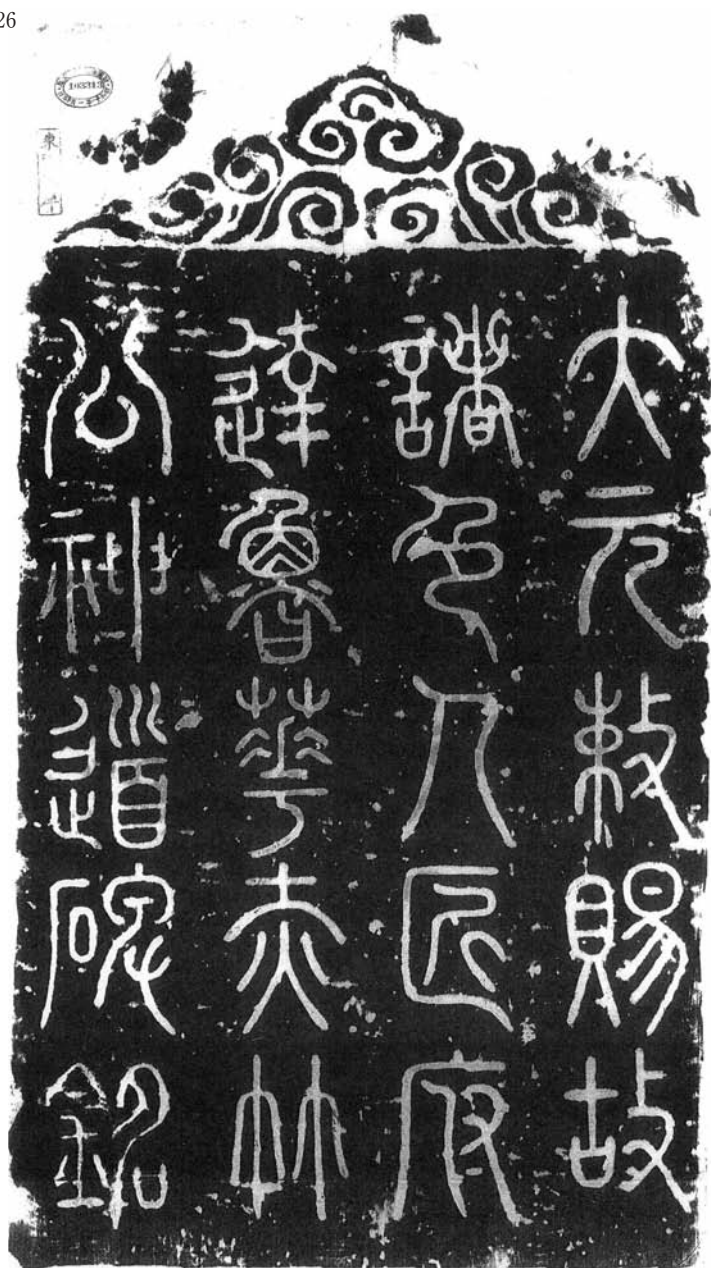 26
大元敕賜故
諸色人匠府
達魯華赤竹
公神道碑銘